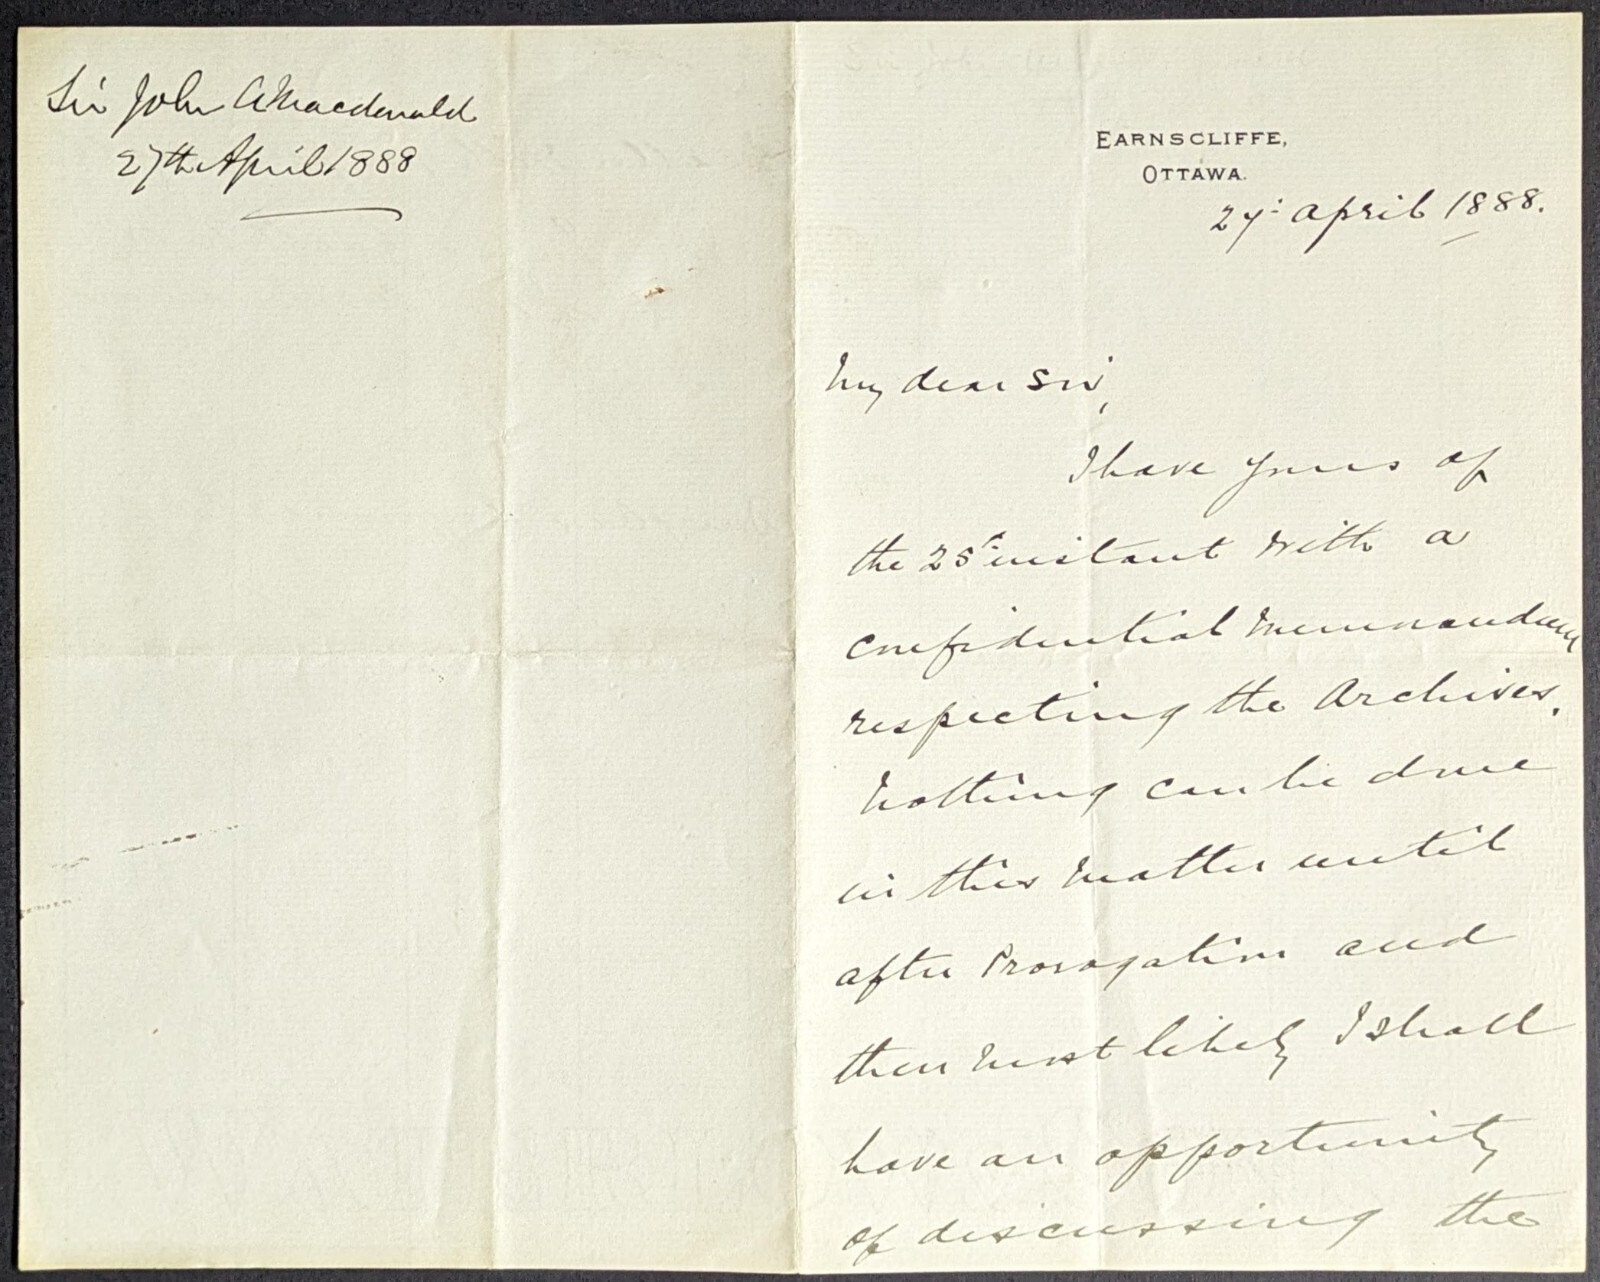 Sir John A Macdonald
27th April 1888
EARNSCLIFFE,
OTTAWA.
27: April 1888.
My dear Sir,
I have yours of
the 25th instant with a
confidential Memorandum
respecting the Archives.
Nothing can be done
in this matter until
after Prorogation and
then most likely I shall
have an opportunity
of discussing the